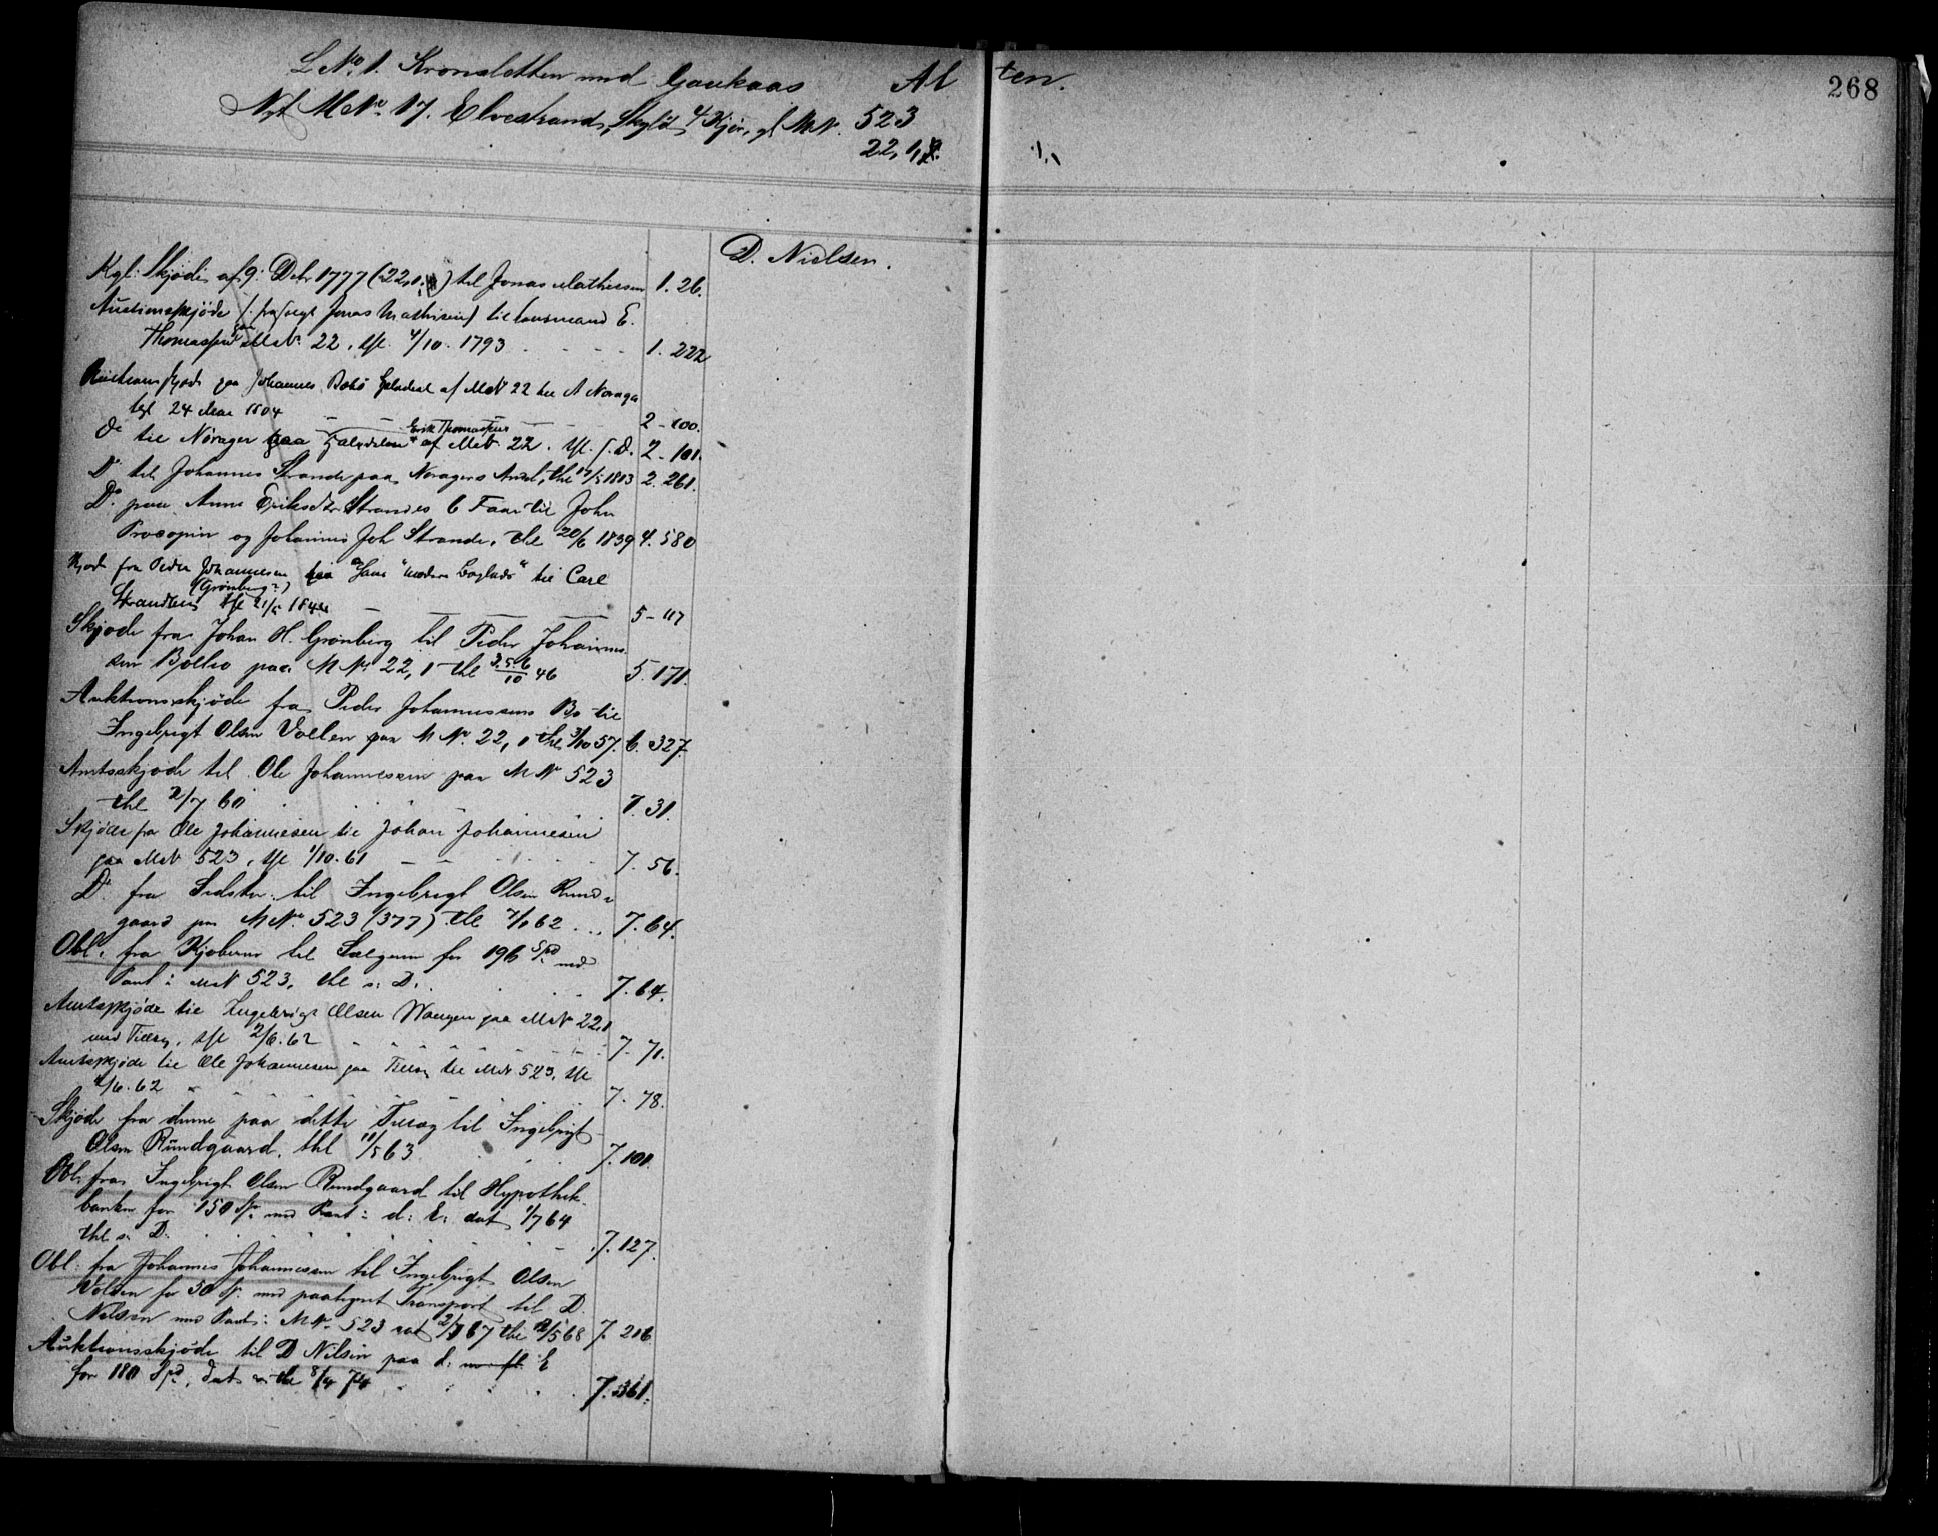 L.No. 1. Kronslotten med Gaukaas Al ten.
268
Nyt M.No. 17. Elvestrand, Skyld 4 Skjer, gl. M.N. 523
22,1
D. Nielsen.
Kgl: Skjöde af 9: Debr 1777 (22,1) til Jonas Mathiesen 1. 26.
Auctionsskjöde (: fra Jonas Mathisen) til Lensmand E.
Thomassen paa MN. 22, thl. 4/10. 1793 1. 222
Auctions skjöde paa Johannes Halvdeel af MN 22 til A Norager
tgl 24 Mai 1804 2-100.
Do til Nørager paa Erik Thomassens Halvdeel af MN. 22. thl. s. D. 2-101.
Do til Johannes Strande paa Noragers Andel, thl 17/5 1813 2. 261.
Do paa Anne Eriksdtr Strandes til John
Procopin og Johannes Joh Strande, thl 20/6 1839 4. 580
Skjøde fra Peder Johannesen (Grønberg?) paa til Carl
Strandhens thl 21/5 184 5-117
Skjøde fra Johan H. Grønberg til Peder Johannes-
sen Bollo paa M No 22,1 thl 3.5.6/10 46 5. 171.
Auktionsskjøde fra Peder Johannessens Bo til
Ingebrigt Olsen Vollen paa M No. 22,1 thl 3/10 57. 6. 327.
Amtsskjøde til Ole Johannessen paa M N 523
thl 2/7 60 7. 31.
Skjøde fra Ole Johannesen til Johan Johannesen
paa MN 523, thl 1/10. 61 7. 56.
Do fra Sidste til Ingebrigt Olsen Rund-
gaard paa M No. 523 (377) thl 7/1 62 7. 64.
Obl. fra Kjøberen til Sælgeren for 196 Spd med
Pant i M N 523, thl s. D. 7. 64.
Amtsskjøde til Ingebrigt Olsen Wangen paa MN 22,1
med Tillæg, thl 2/6. 62 7. 71.
Amtsskjøde til Ole Johannesen paa Tillæg til MN 523, thl
2/6. 62 7. 78.
Skjøde fra denne paa dette Tillæg til Ingebrigt
Olsen Rundgaard, thl 11/5 63 7. 101.
Obl. fra Ingebrigt Olsen Rundgaard til Hypothek-
banken for 150 Sp. med Pant i d: E: dat 1/7 64
thl s. D. 7. 127.
Obl: fra Johannes Johannessen til Ingebrigt Olsen
Volden for 50 Sp. med paategnet Transport til D.
Nilsen med Pant i M No. 523 dat 2/1 67 thl 12/5 68 7. 206.
Auktionsskjøde til D Nilsen paa d: E
for 180 Spd, dat. & thl 8/4 74 7. 361.